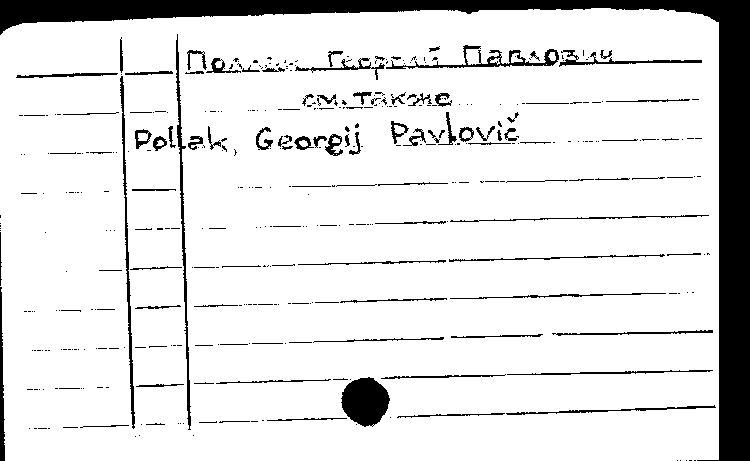 Поллак, Георгий Павлович
см. также
Pollak, Georgij Pavlovič